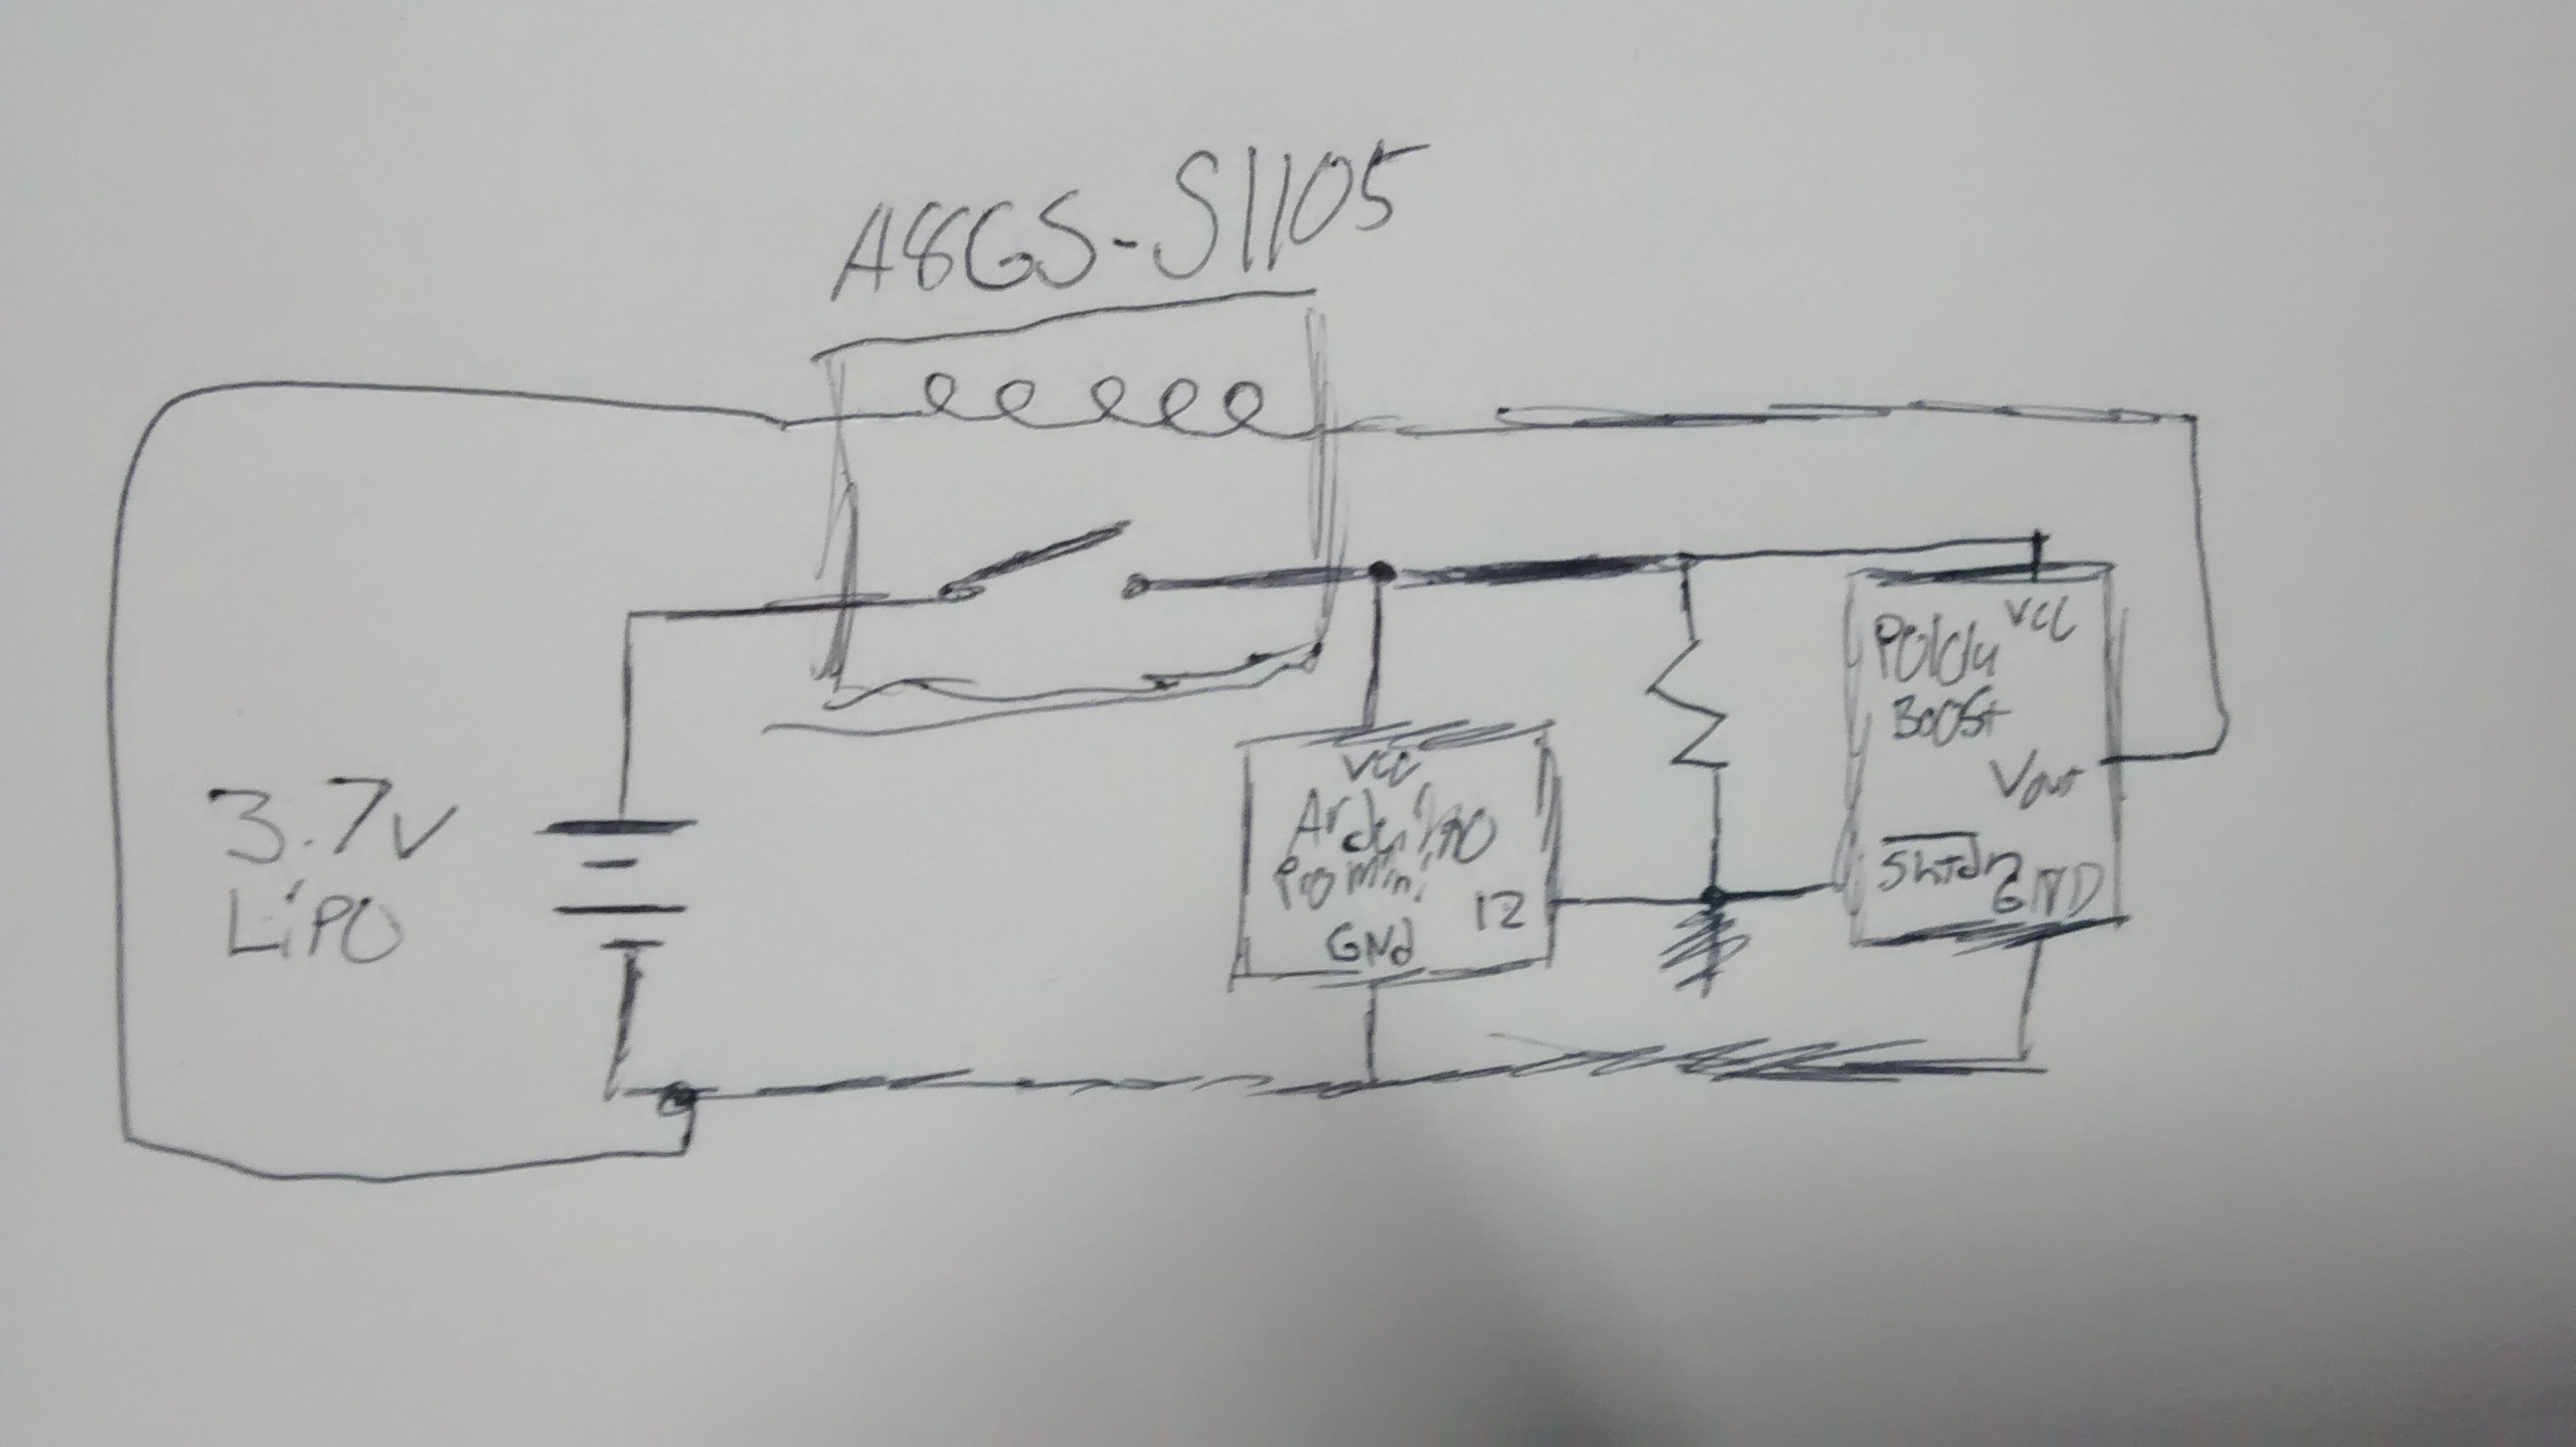 A8GS-S1105
3.7v
LiPO
VCC
Arduino
Pro Mini
12
GNd
VCC
Pololu
BOOSt
Vout
Shtdn
GND